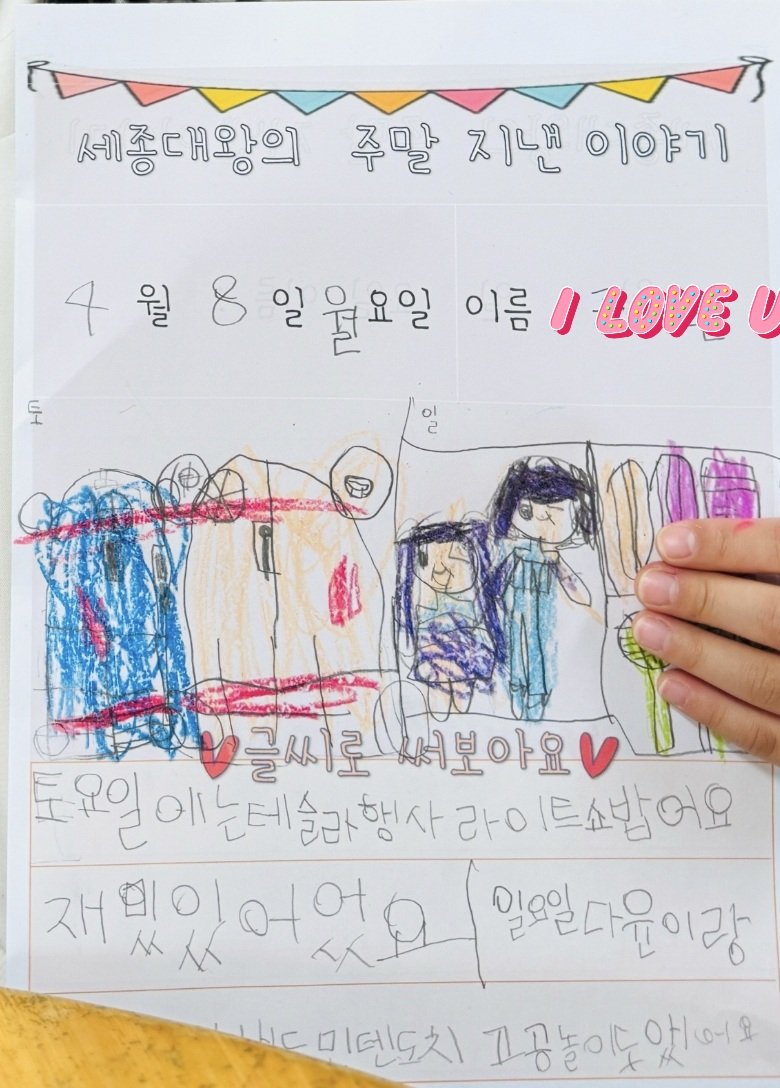 세종대왕의 주말 지낸 이야기
4 월 8 일 월요일 이름 I LOVE U
토
일
글씨로 써보아요
토요일에는테슬라행사 라이트쇼밥어요
재밌있어었요
일요일다윤이랑
드민덴도치 고공놀이